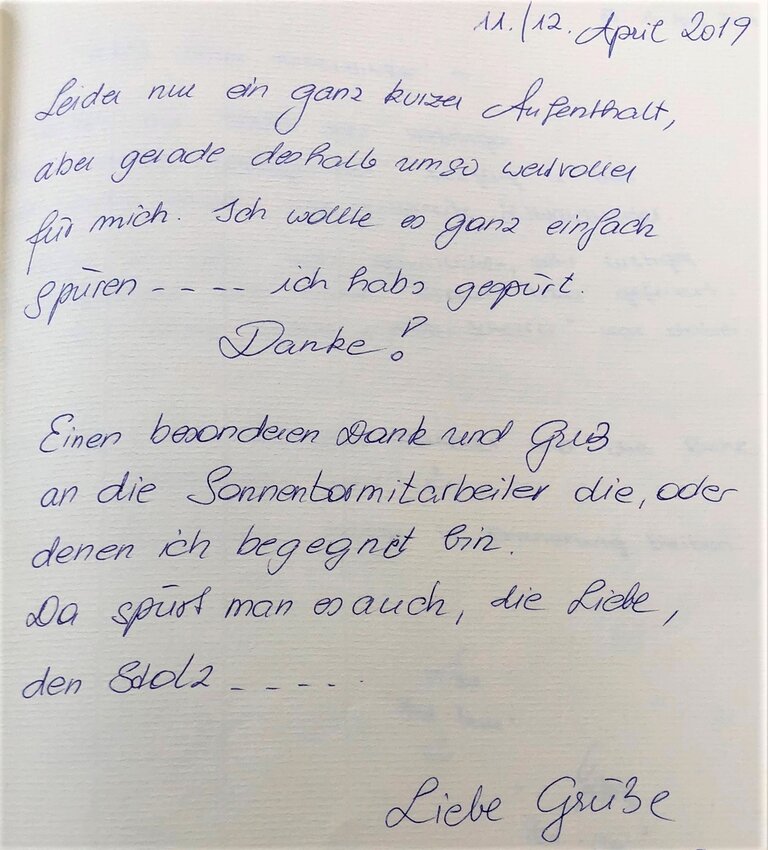 11./12. April 2019
Leider nur ein ganz kurzer Aufenthalt,
aber gerade deshalb umso wertvoller
für mich. Ich wollte es ganz einfach
spüren ---- ich habs gespürt.
Danke!
Einen besonderen Dank und Gruß
an die Sonnentormitarbeiter die, oder
denen ich begegnet bin.
Da spürt man es auch, die Liebe,
den Stolz ----.
Liebe Grüße